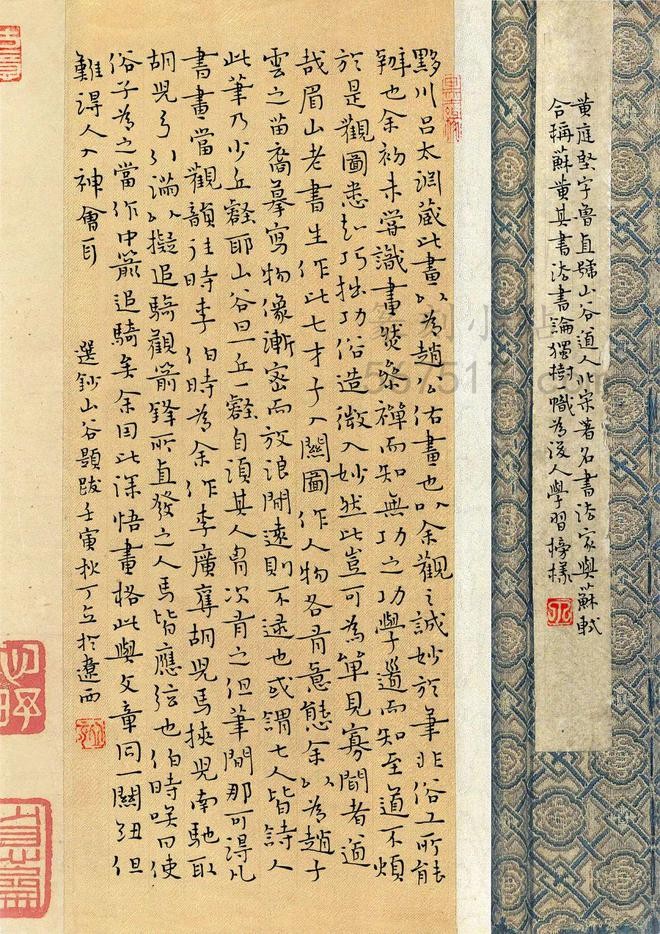 黄庭堅字魯直號山谷道人北宋著名書法家與蘇軾
合稱蘇黄其書法書論獨樹一幟為後人學習榜樣
黟川吕太渊藏此畫以為趙公佑畫也以余觀之誠妙於筆非俗工所能
辦也余初未嘗識畫然參禪而知無功之功學道而知至道不煩
於是觀圖悉知巧拙功俗造微入妙然此豈可為單見寡聞者道
哉眉山老書生作此七才子入關圖作人物各有意態余以為趙子
雲之苗裔摹寫物像漸密而放浪閒遠則不逮也或謂七人皆詩人
此筆乃少丘壑耶山谷曰一丘一壑自須其人胷次有之但筆間那可得凡
書畫當觀韻往時李伯時為余作李廣奪胡兒馬挾兒南馳取
胡兒弓引滿以擬追騎觀箭鋒所直發之人馬皆應弦也伯時笑曰使
俗子為之當作中箭追騎矣余因此深悟畫格此與文章同一關紐但
難得人入神會耳
選鈔山谷題跋壬寅秋丁立於遼西